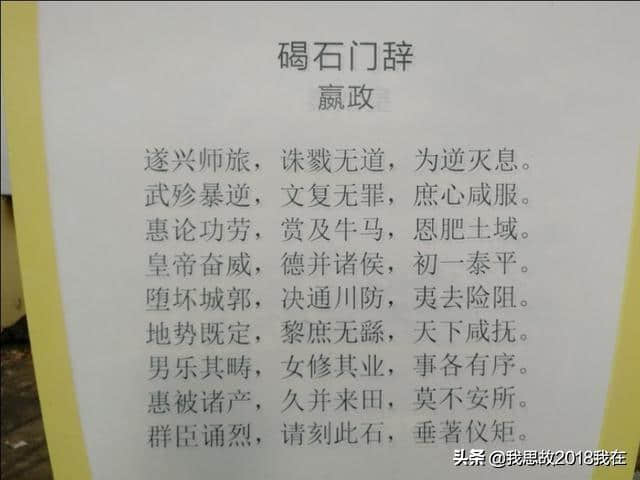 碣石门辞
嬴政
遂兴师旅，诛戮无道，为逆灭息。
武殄暴逆，文复无罪，庶心咸服。
惠论功劳，赏及牛马，恩肥土域。
皇帝奋威，德并诸侯，初一泰平。
堕坏城郭，决通川防，夷去险阻。
地势既定，黎庶无繇，天下咸抚。
男乐其畴，女修其业，事各有序。
惠被诸产，久并来田，莫不安所。
群臣诵烈，请刻此石，垂著仪矩。
头条 @我思故2018我在